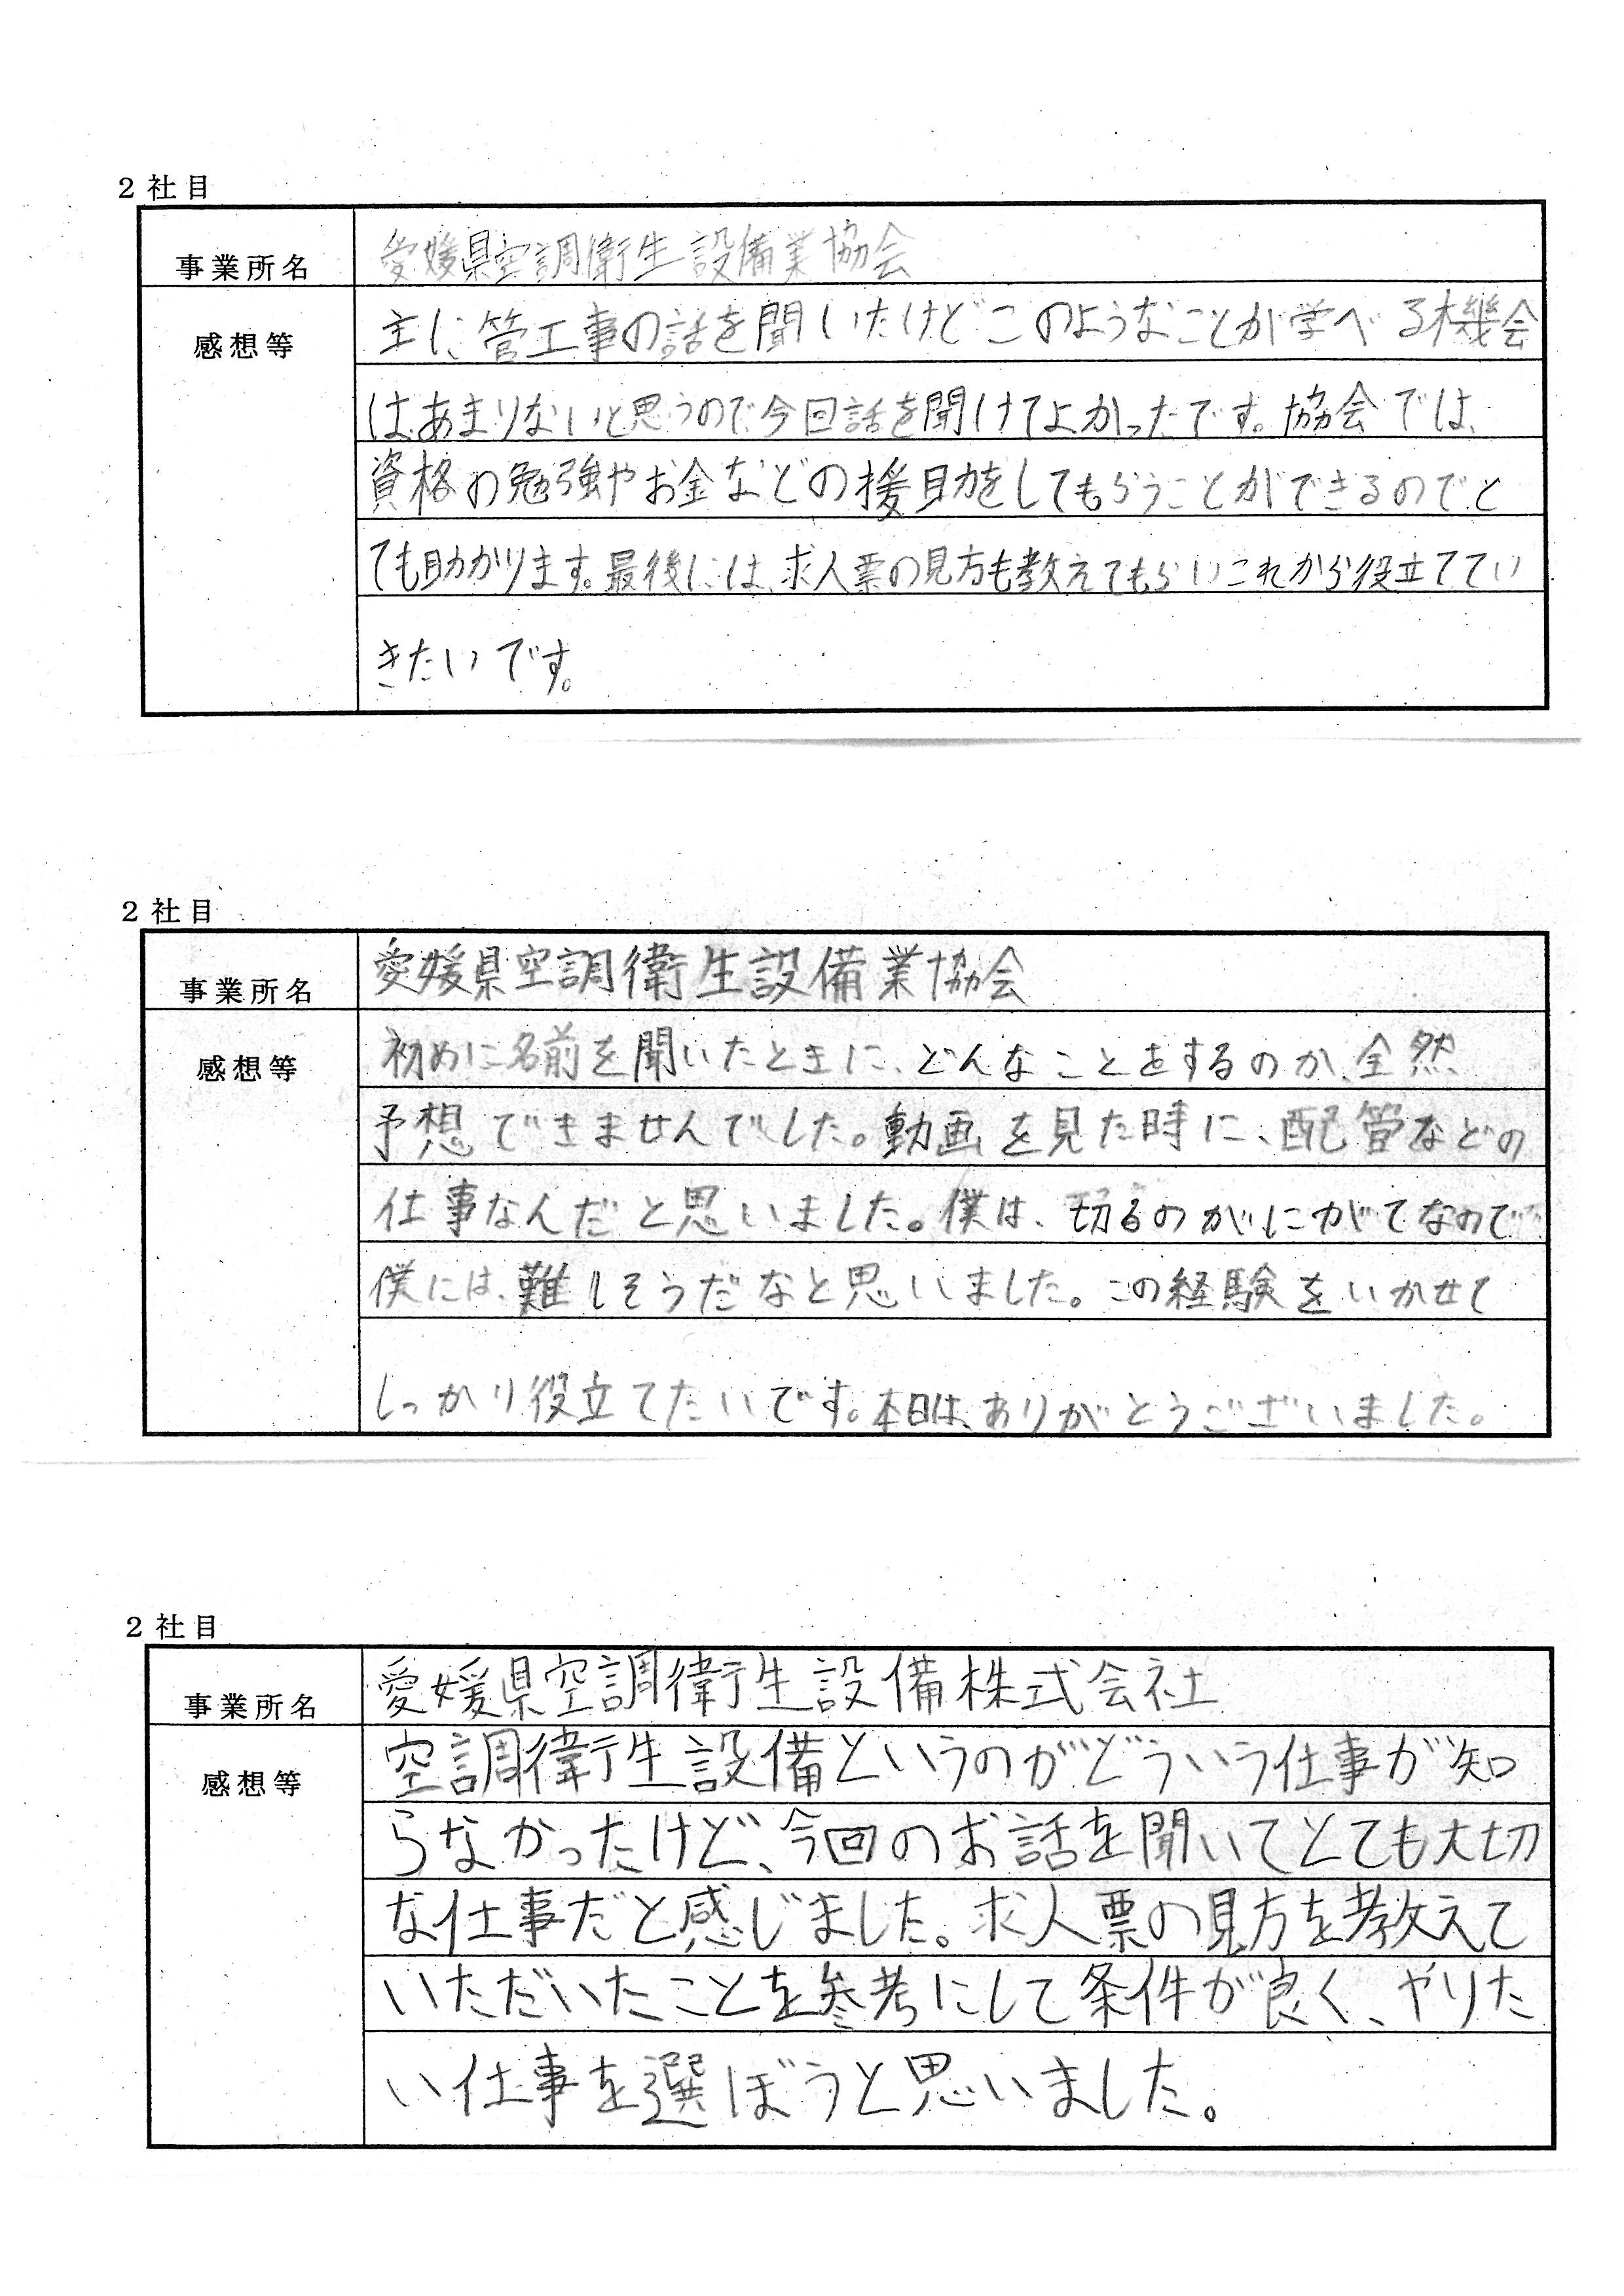 2 社目
事業所名 愛媛県空調衛生設備業協会
感想等 主に管工事の話を聞いたけどこのようなことが学べる機会
は、あまりないと思うので今回話を聞けてよかったです。協会では、
資格の勉強やお金などの援助をしてもらうことができるのでと
ても助かります。最後には、求人票の見方も教えてもらいこれから役立ててい
きたいです。
2 社目
事業所名 愛媛県空調衛生設備業協会
感想等 初めに名前を聞いたときに、どんなことをするのか、全然
予想できませんでした。動画を見た時に、配管などの
仕事なんだと思いました。僕は、切るのがにがてなので
僕には、難しそうだなと思いました。この経験をいかせて
しっかり役立てたいです。本日は、ありがとうございました。
2 社目
事業所名 愛媛県空調衛生設備株式会社
感想等 空調衛生設備というのがどういう仕事が知
らなかったけど、今回のお話を聞いてとても大切
な仕事だと感じました。求人票の見方を教えて
いただいたことを参考にして条件が良く、やりた
い仕事を選ぼうと思いました。